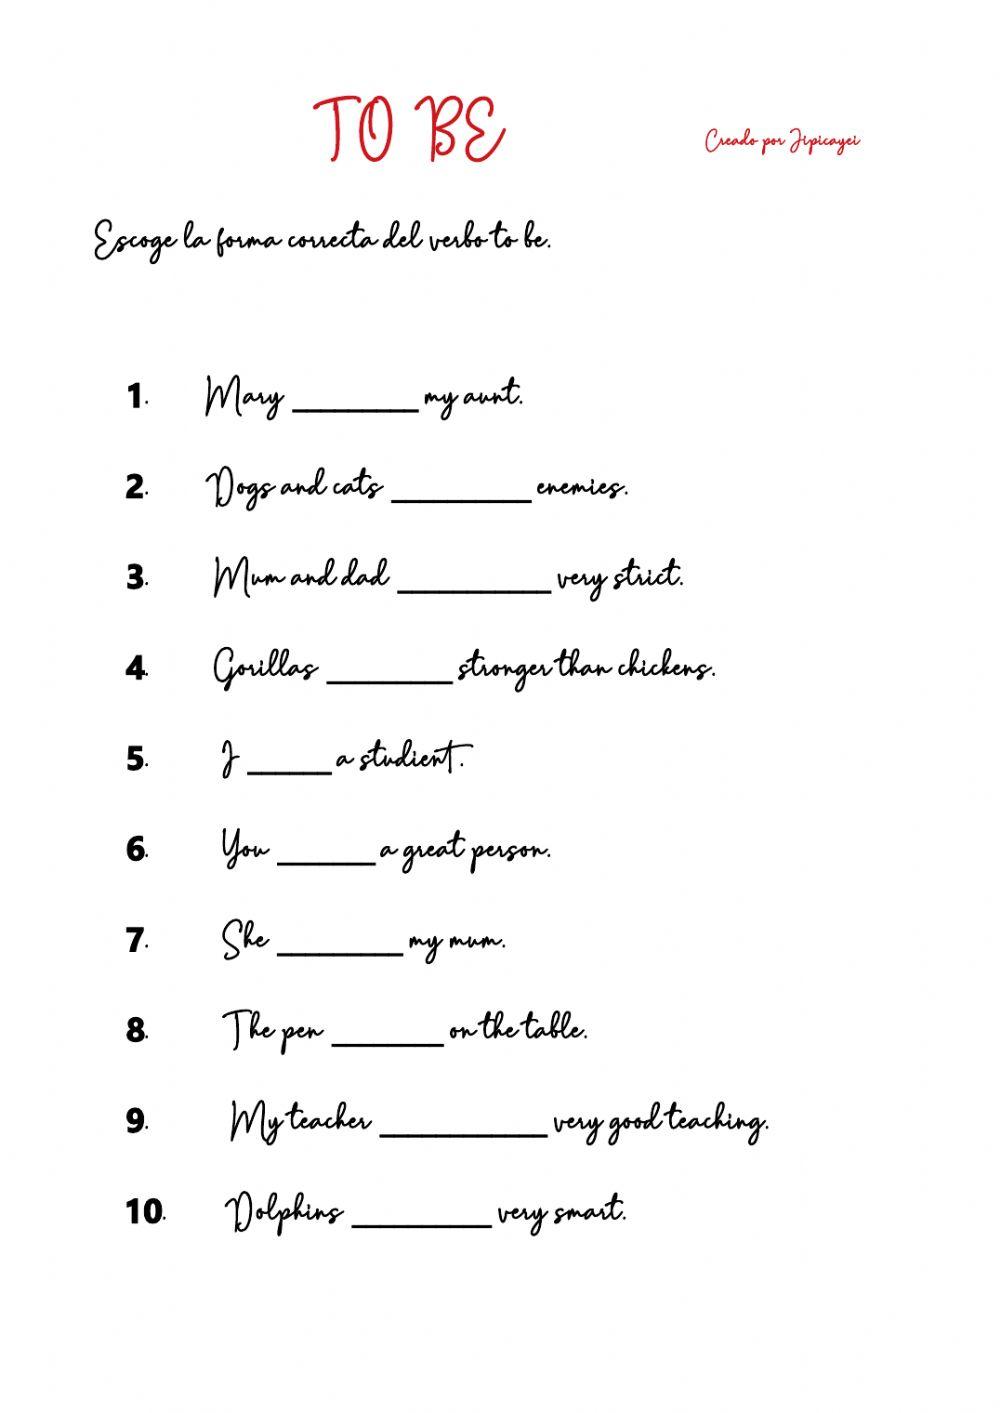 TO BE
Creado por Jipicayei
Escoge la forma correcta del verbo to be.
1. Mary _________ my aunt.
2. Dogs and cats __________ enemies.
3. Mum and dad ___________ very strict.
4. Gorillas _________ stronger than chickens.
5. I ______ a studient.
6. You _______ a great person.
7. She _________ my mum.
8. The pen ________ on the table.
9. My teacher ____________ very good teaching.
10. Dolphins __________ very smart.